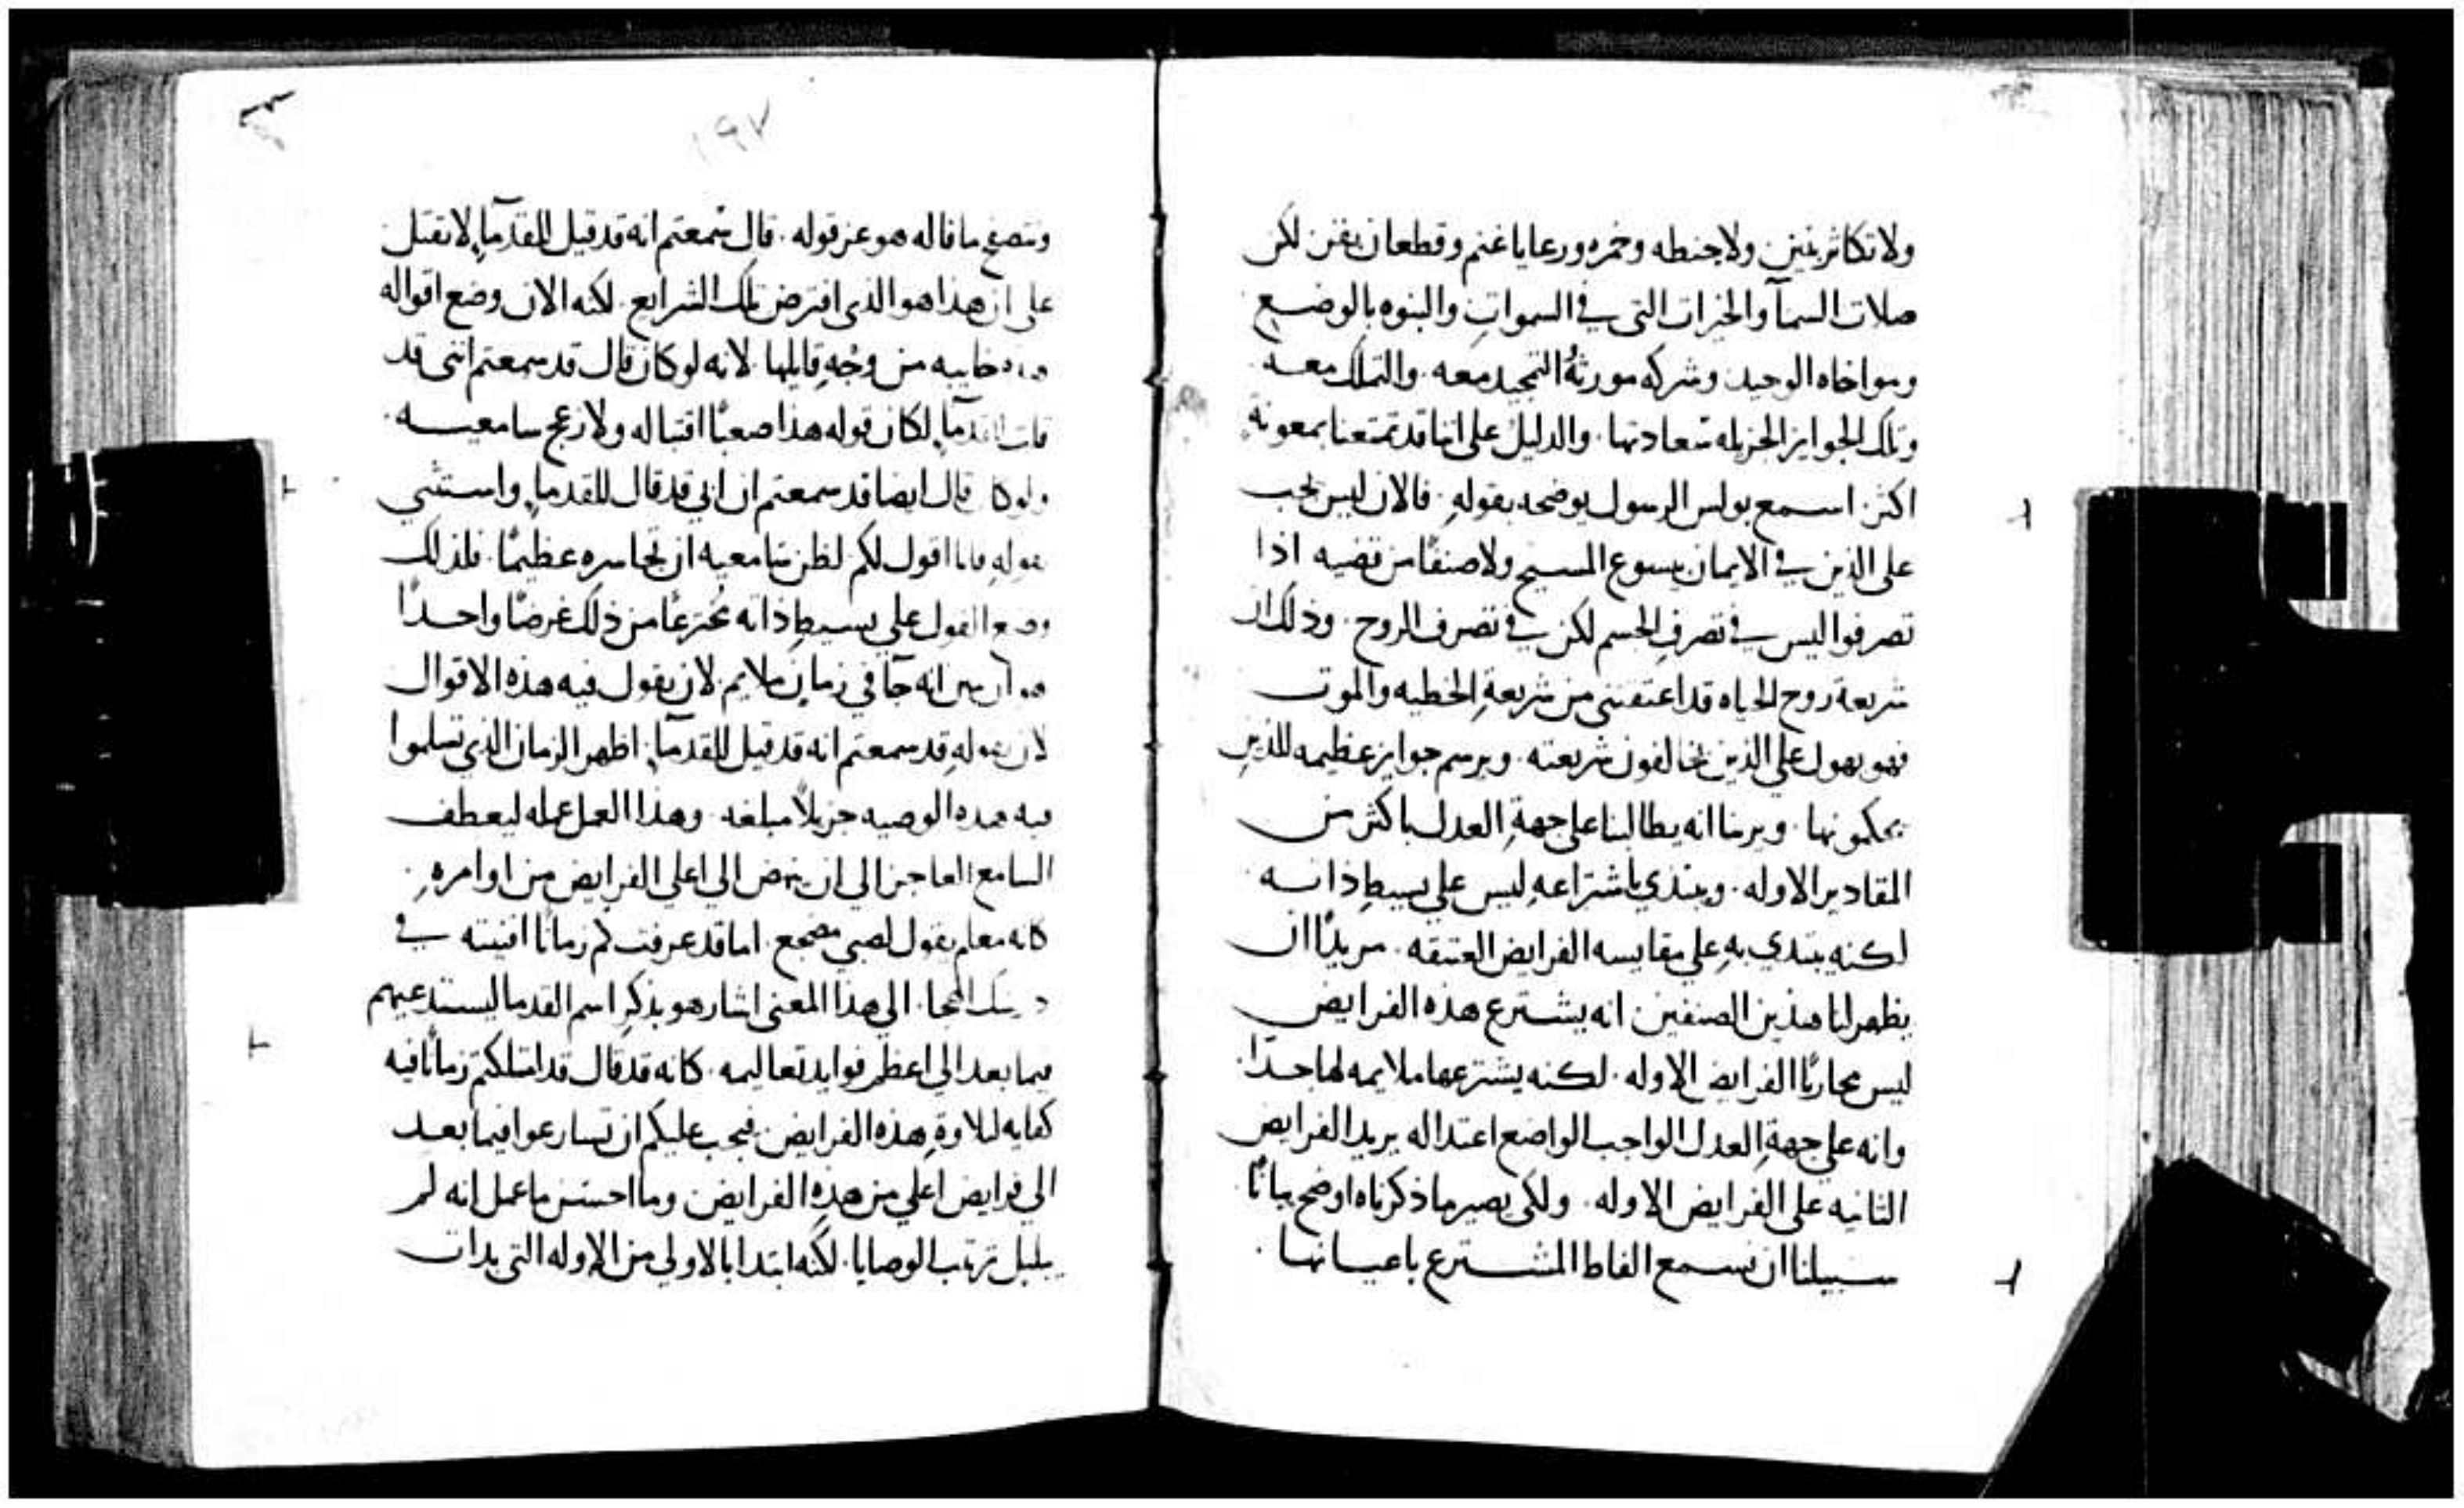 ولا تكاثر بنين ولا حنطه وخمره ورعايا غنم وقطعان بقر لكن
صلات السمآ والخيرات التي في السموات والبنوه بالوضع
ومواخاه الوحيد وشركه مورثه التمجيد معه والتملك معه
وتلك الجوايز الجزيله سعادتها والدليل على اننا قد تمتعنا بمعونة
اكثر اسمع بولس الرسول يوضحه بقوله فالان ليس يجب
على الذين في الايمان بيسوع المسيح ولا صنفا من قضيه اذا
تصرفوا ليس في تصرف الجسم لكن في تصرف الروح وذلك ان
شريعة روح الحياه قد اعتقتني من شريعة الخطيه والموت
فهو يهول على الذين يخالفون شريعته ويرسم جوايز عظيمه للذين
يحكمونها ويرينا انه يطالبنا على جهة العدل باكثر من
المقادير الاوله ويبتدي باشتراعه ليس على بسيط ذاته
لكنه يبتدي به على مقايسه الفرايض العتيقه مريدًا ان
يظهر لنا هذين الصنفين انه يشترع هذه الفرايض
ليس محاربًا الفرايض الاوله لكنه يشترعها ملايمه لها جدًا
وانه على جهة العدل الواجب الواضع اعتداله يريد الفرايض
الثانيه على الفرايض الاوله ولكي يصير ما ذكرناه اوضح بيانًا
سبيلنا ان نسمع الفاظ المشترع باعيانها
١٩٧
ونتصفح ما قاله هو عن قوله قال سمعتم انه قد قيل للقدمآ لا تقتل
على ان هذا هو الذي افترض تلك الشرايع لكنه الان وضع اقواله
خاييه من وجه قايلها لانه لو كان قال قد سمعتم انني قد
قلت للقدمآ لكان قوله هذا صعبًا اقتباله ولازعج سامعيه
ولو كان قال ايضا قد سمعتم ان ابي قد قال للقدما واستثنى
بقوله فانا اقول لكم لظن سامعيه ان تجاسره عظيمًا فلذلك
وضع القول على بسيط ذاته مخترعًا من ذلك غرضًا واحدًا
هو ان يبين انه جآ في زمان ملايم لان يقول فيه هذه الاقوال
لان بقوله قد سمعتم انه قد قيل للقدمآ اظهر الزمان الذي تسلموا
فيه هذه الوصيه جزيلاً مبلغه وهذا العمل عمله ليعطف
السامع العاجز الى ان ينهض الى اعلى الفرايض من اوامره
كانه معلم يقول لصبي مضجع اما قد عرفت كم زمانًا افنيته في
الهجا الى هذا المعنى اشار هو بذكر اسم القدما ليستدعيهم
فيما بعد الى اعظم فوايد تعاليمه كانه قد قال قد امتلكتم زمانًا فيه
كفايه لتلاوة هذه الفرايض فيجب عليكم ان تسارعوا فيما بعد
الى فرايض اعلى من هذه الفرايض وما احسن ما عمل انه لم
يبلبل ترتيب الوصايا لكنه ابتدا بالاولي من الاوله التي بدات